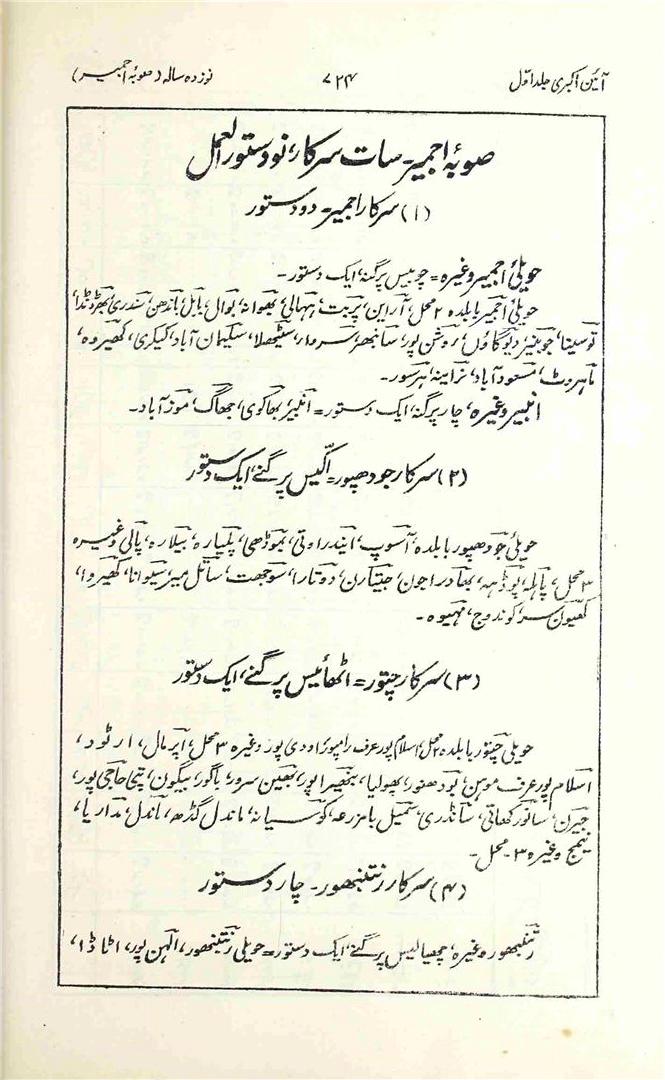 آئین اکبری جلد اول ۷۲۴ نوزدہ سالہ (صوبۂ اجمیر)
صوبۂ اجمیر۔ سات سرکار، نو دستور العمل
(۱) سرکار اجمیر۔ دو دستور
حویلیٔ اجمیر وغیرہ = چوبیس پرگنہ، ایک دستور۔
حویلیٔ اجمیر با بلدہ ۲ محل، آراین، پربت، بھنائی، بھوانہ، بوال، باہل، باندھن، سندری، بھرڈنڈا،
توسینا، جوبنیر، دیوگاؤں، روشن پور، سانبھر، سروار، سیتھلا، سلیمان آباد، کیکری، کھیروہ،
ماہروٹ، مسعود آباد، نراینہ، ہرسور۔
انبیر وغیرہ، چار پرگنہ، ایک دستور = انبیر، بھاکوی، جھاگ، موزآباد۔
(۲) سرکار جودھپور = اکیس پرگنے، ایک دستور
حویلیٔ جودھپور با بلدہ، آسوپ، ایندراوتی، بھوڈھی، پلپارہ، بیلارہ، پالی وغیرہ
۳ محل، پاہلہ، پوڈہہ، بھادراجون، جیتارن، دوتارا، سوجھت، ساتل میر، سیوانا، کھیروا،
کھیون سر، کوندوج، مہیوہ۔
(۳) سرکار چتور = اٹھائیس پرگنے، ایک دستور
حویلی چتور با بلدہ ۲ محل، اسلام پور عرف رامپور، اودی پور وغیرہ ۳ محل، اپرمال، ارتود،
اسلام پور عرف موہن، بودھنور، پھولیا، بنھیرا، پور، بھین سرور، باگور، بیگون، پتی حاجی پور،
جیرن، سانور کھاتی، سانڈری، سمیل با مزرعہ، کوسیانہ، ماندل گڈھ، ماندل، مداریا،
نیمچ وغیرہ ۳۔ محل۔
(۴) سرکار رنتنبھور۔ چار دستور
رنتنبھور وغیرہ، چھیالیس پرگنے، ایک دستور = حویلی رنتنبھور، الہن پور، اٹاڈا،